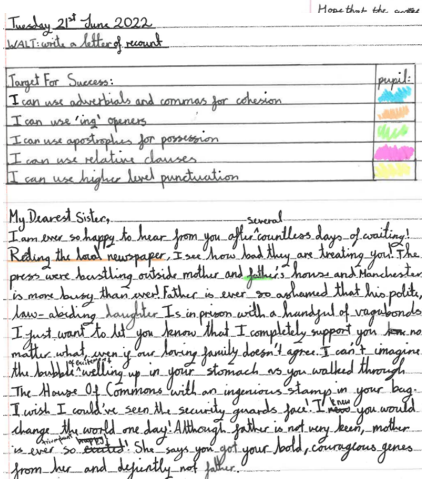 Hope that the
Tuesday 21st June 2022
WALT: write a letter of recount
Target For Success: pupil:
I can use adverbials and commas for cohesion
I can use 'ing' openers
I can use apostrophes for possession
I can use relative clauses
I can use higher level punctuation
My Dearest Sister,
several
I am ever so happy to hear from you after countless days of waiting!
Reding the local newspaper, I see how bad they are treating you! The
press were bustling outside mother and father's house and Manchester
is more busy than ever! Father is ever so ashamed that his polite,
law-abiding daughter Is in prison with a handful of vagabonds
I just want to let you know that I completely support you no
matter what, even if our loving family doesn't agree. I can't imagine
the bubble welling up in your stomach as you walked through
The House Of Commons with an ingenious stamp in your bag.
I wish I could've seen the security guards face. I knew you would
change the world one day! Although father is not very keen, mother
is ever so She says you got your bold, courageous genes
from her and defiently not father.